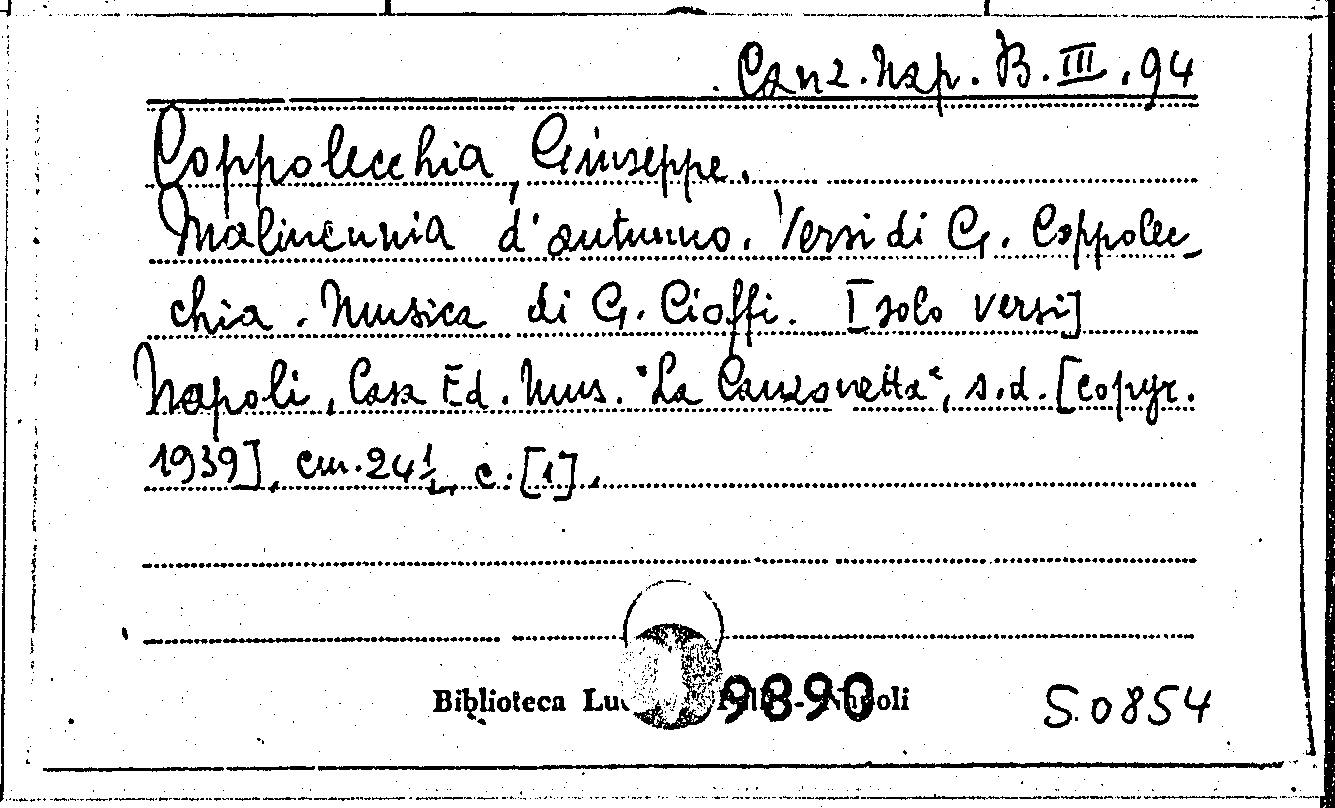 Canz. Nap. B. III. 94
Coppolecchia, Giuseppe.
Malincunia d'autunno. Versi di G. Coppolec_
chia. Musica di G. Cioffi. [solo versi]
Napoli, Casa Ed. Mus. "La Canzonetta", s.d. [copyr.
1939], cm. 24½, c. [1].
Biblioteca 9890 Napoli S.0854